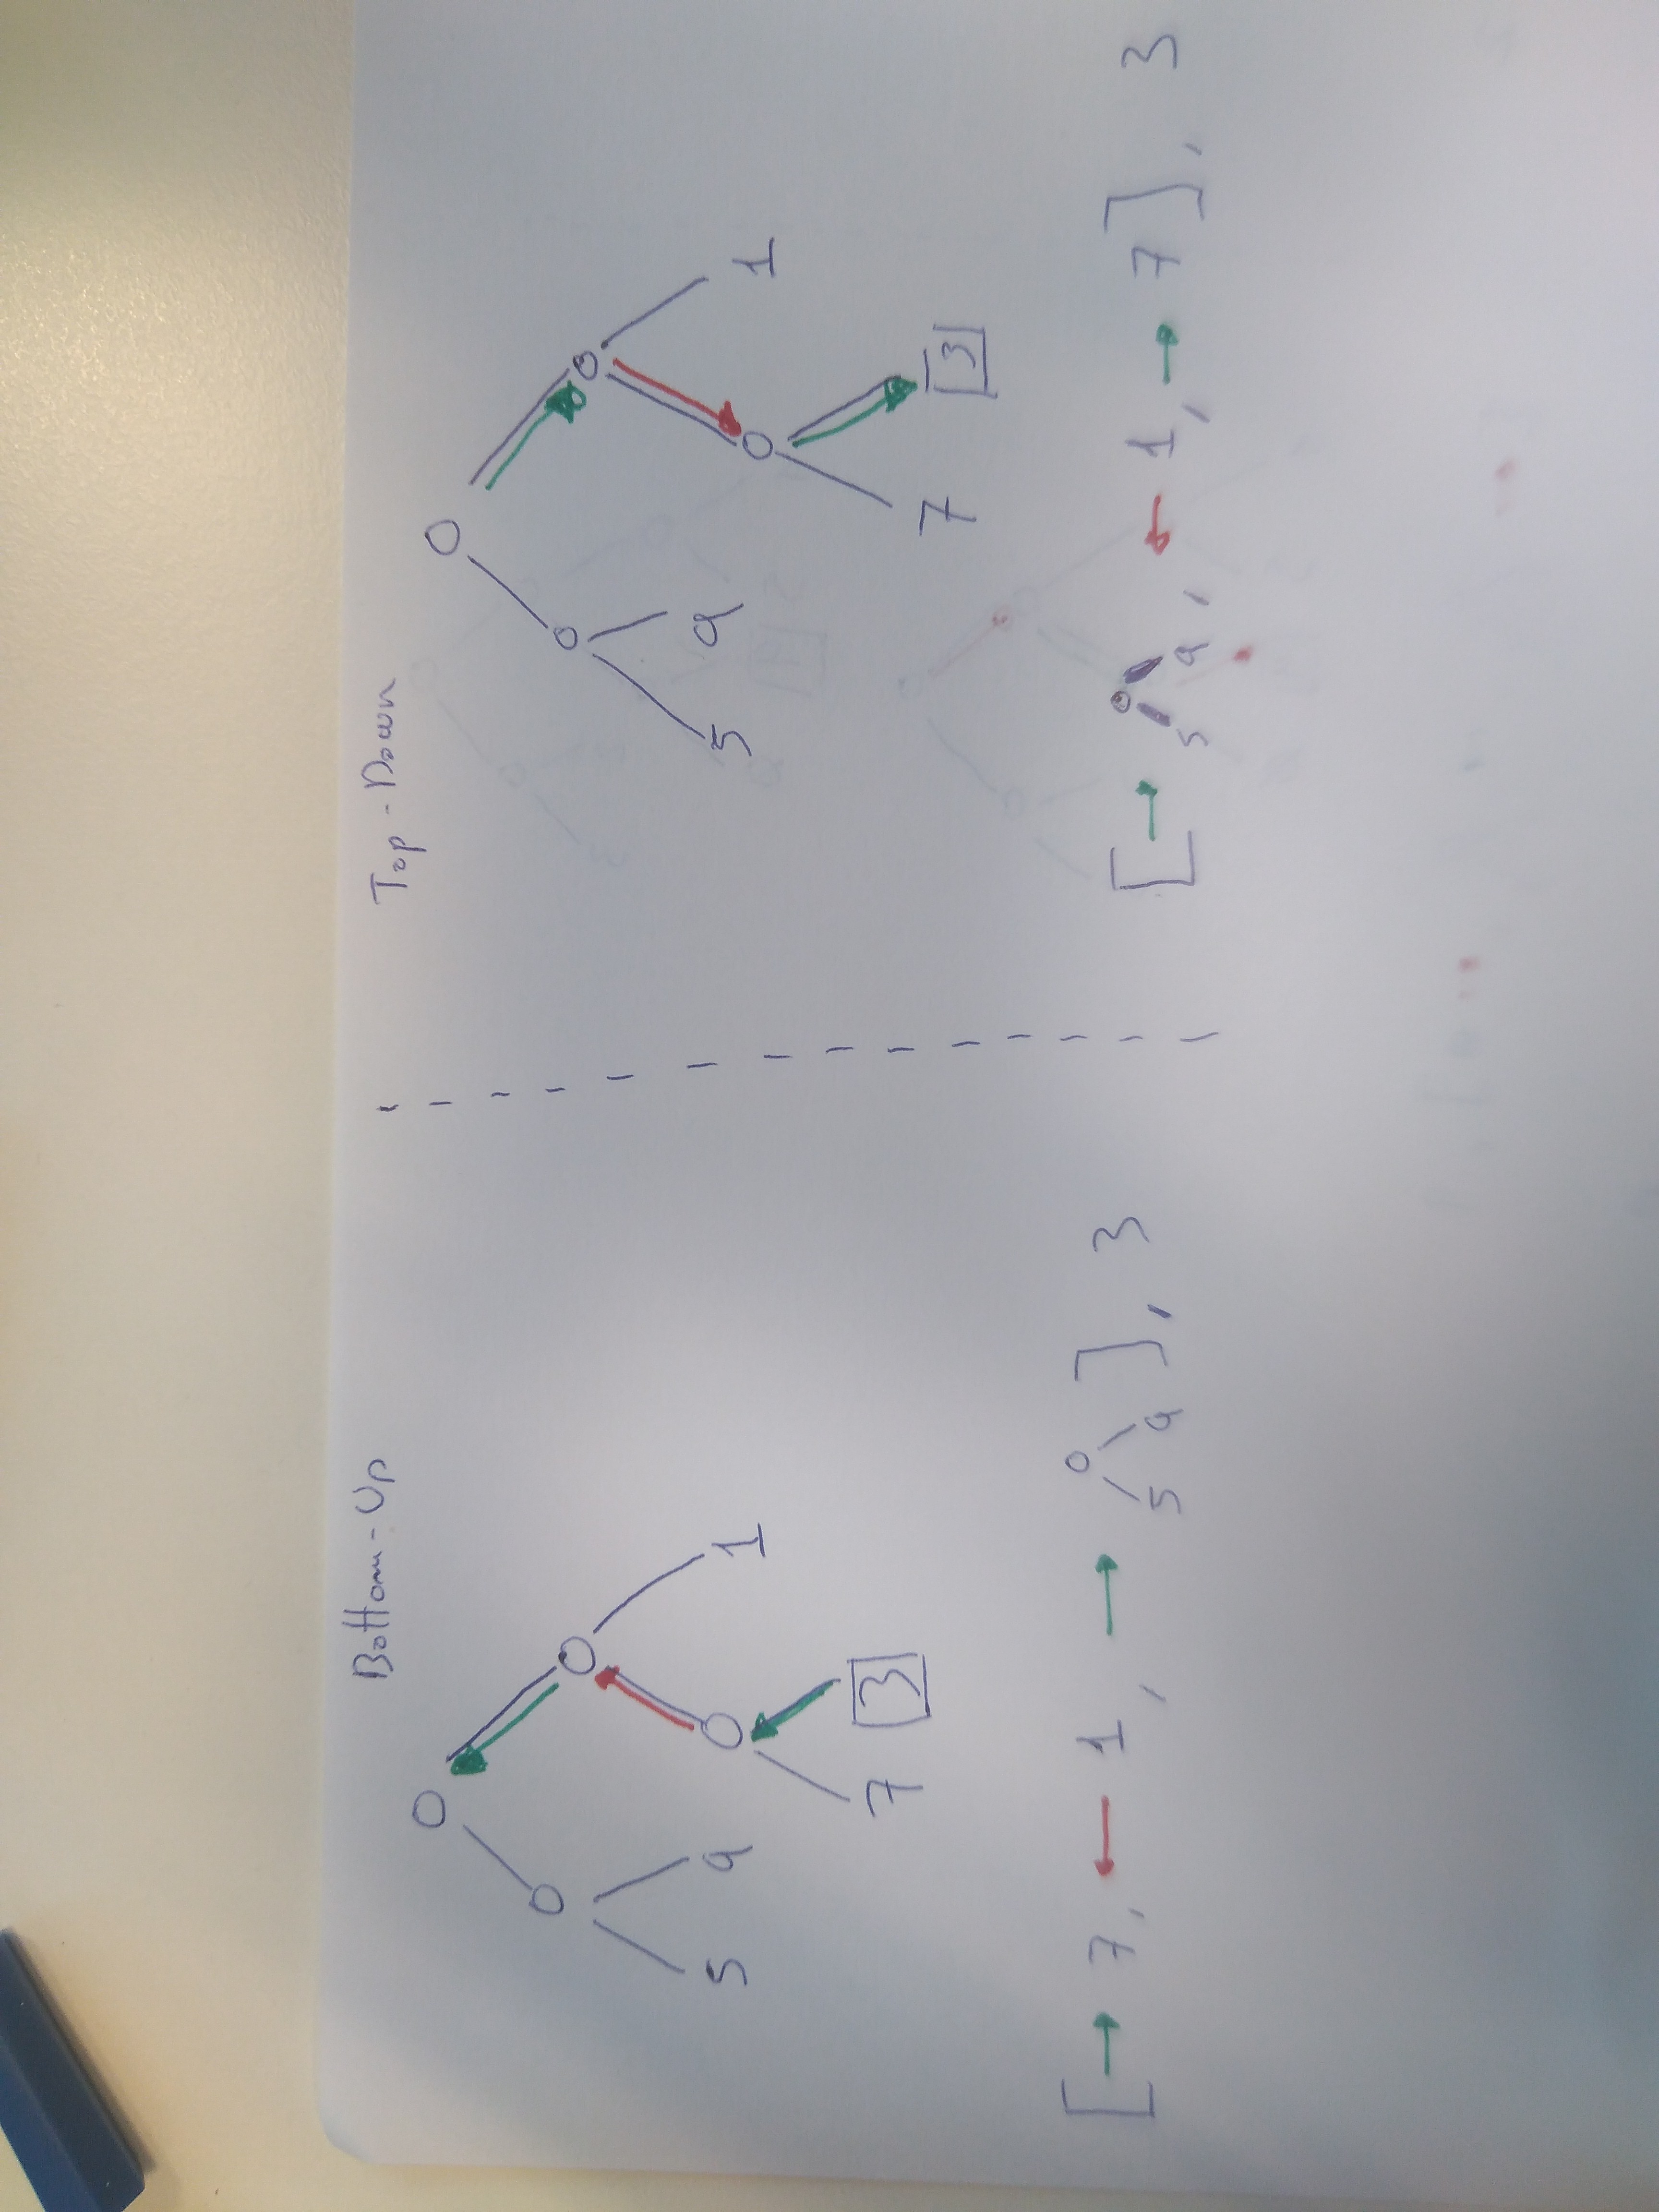 Bottom-Up
5 9 1
7 3
[→ 7, ← 1, → 5 9], 3
Top-Down
5 9 1
7 3
[→ 5 9, ← 1, → 7], 3